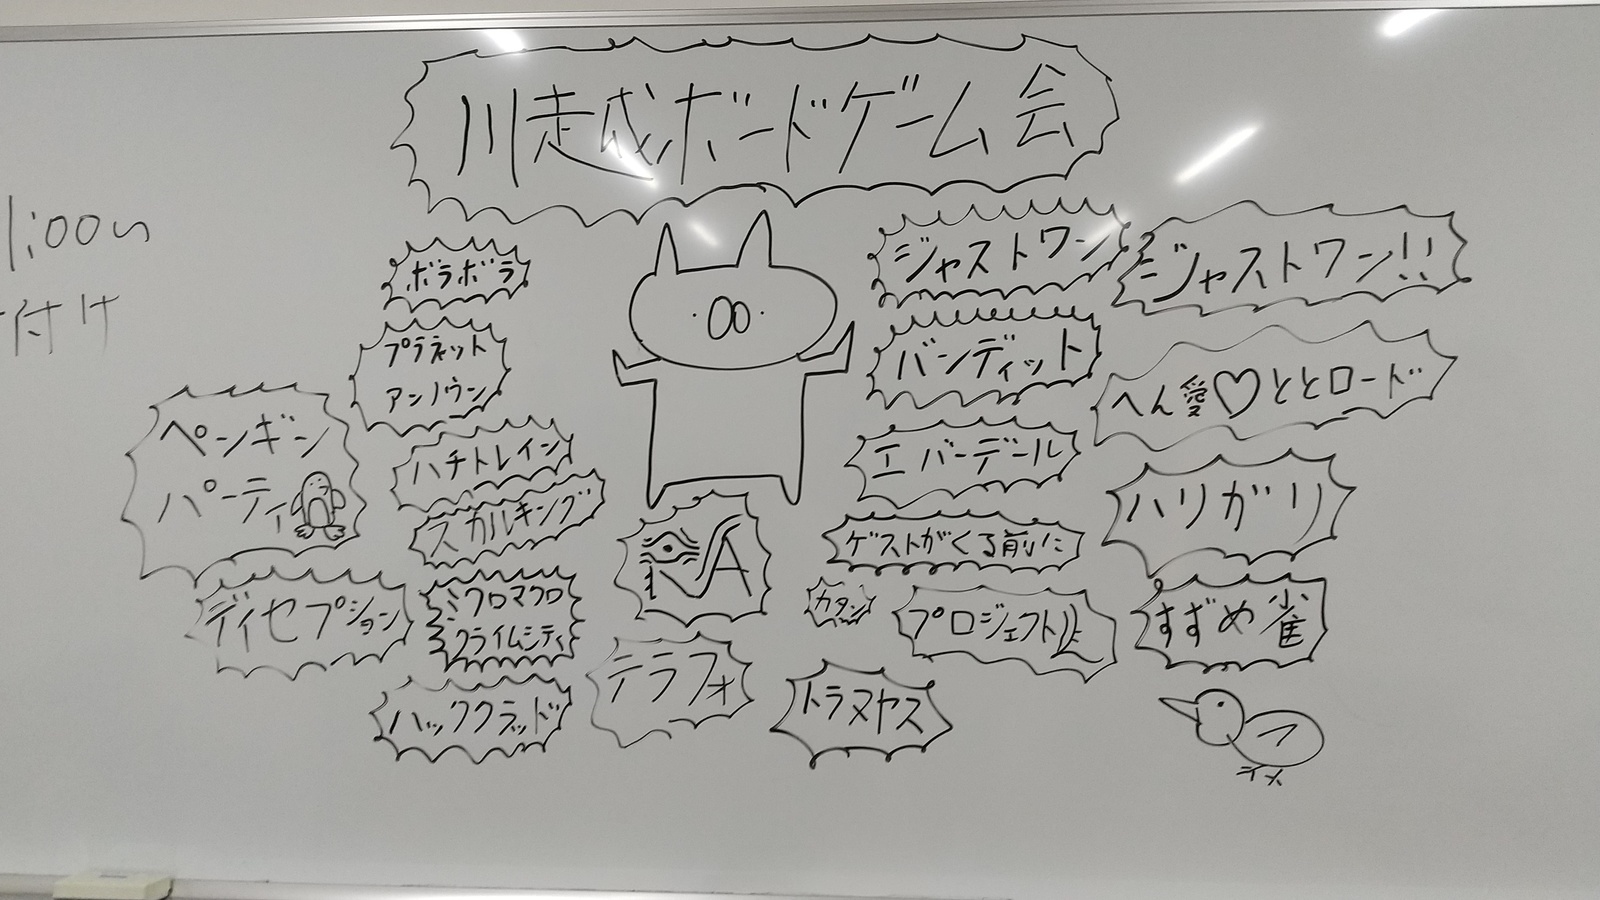 川越ボードゲーム会
1:00い
付け
ボラボラ
プラネット
アンノウン
ペンギン
パーティ
ハチトレイン
スカルキング
ディセプション
ミクロマクロ
クライムシティ
ハックグラッド
RA
テラフォ
トラヌヤス
カタン
ジャストワン
バンディット
エバーデール
ゲストがくる前に
プロジェクトL
ジャストワン!!
へん愛♡ととロード
ハリガリ
すずめ雀